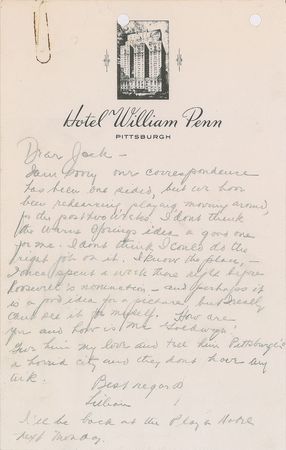 Hotel William Penn
PITTSBURGH
Dear Jack -
I am sorry our correspondence
has been one sided, but we have
been rehearsing playing moving around,
for the past two weeks. I dont think
the Warm Springs idea a good one
for me. I dont think I could do the
right job on it. I know the place, -
I once spent a week there right before
Roosevelt's nomination - and perhaps it
is a good idea for a picture, but I really
cant see it for myself. How are
you and how is Mr Goldwyn?
Give him my love and tell him Pittsburgh's
a horrid city and they dont have any
Best regards
Lillian
I'll be back at the Plaza Hotel
next Monday.